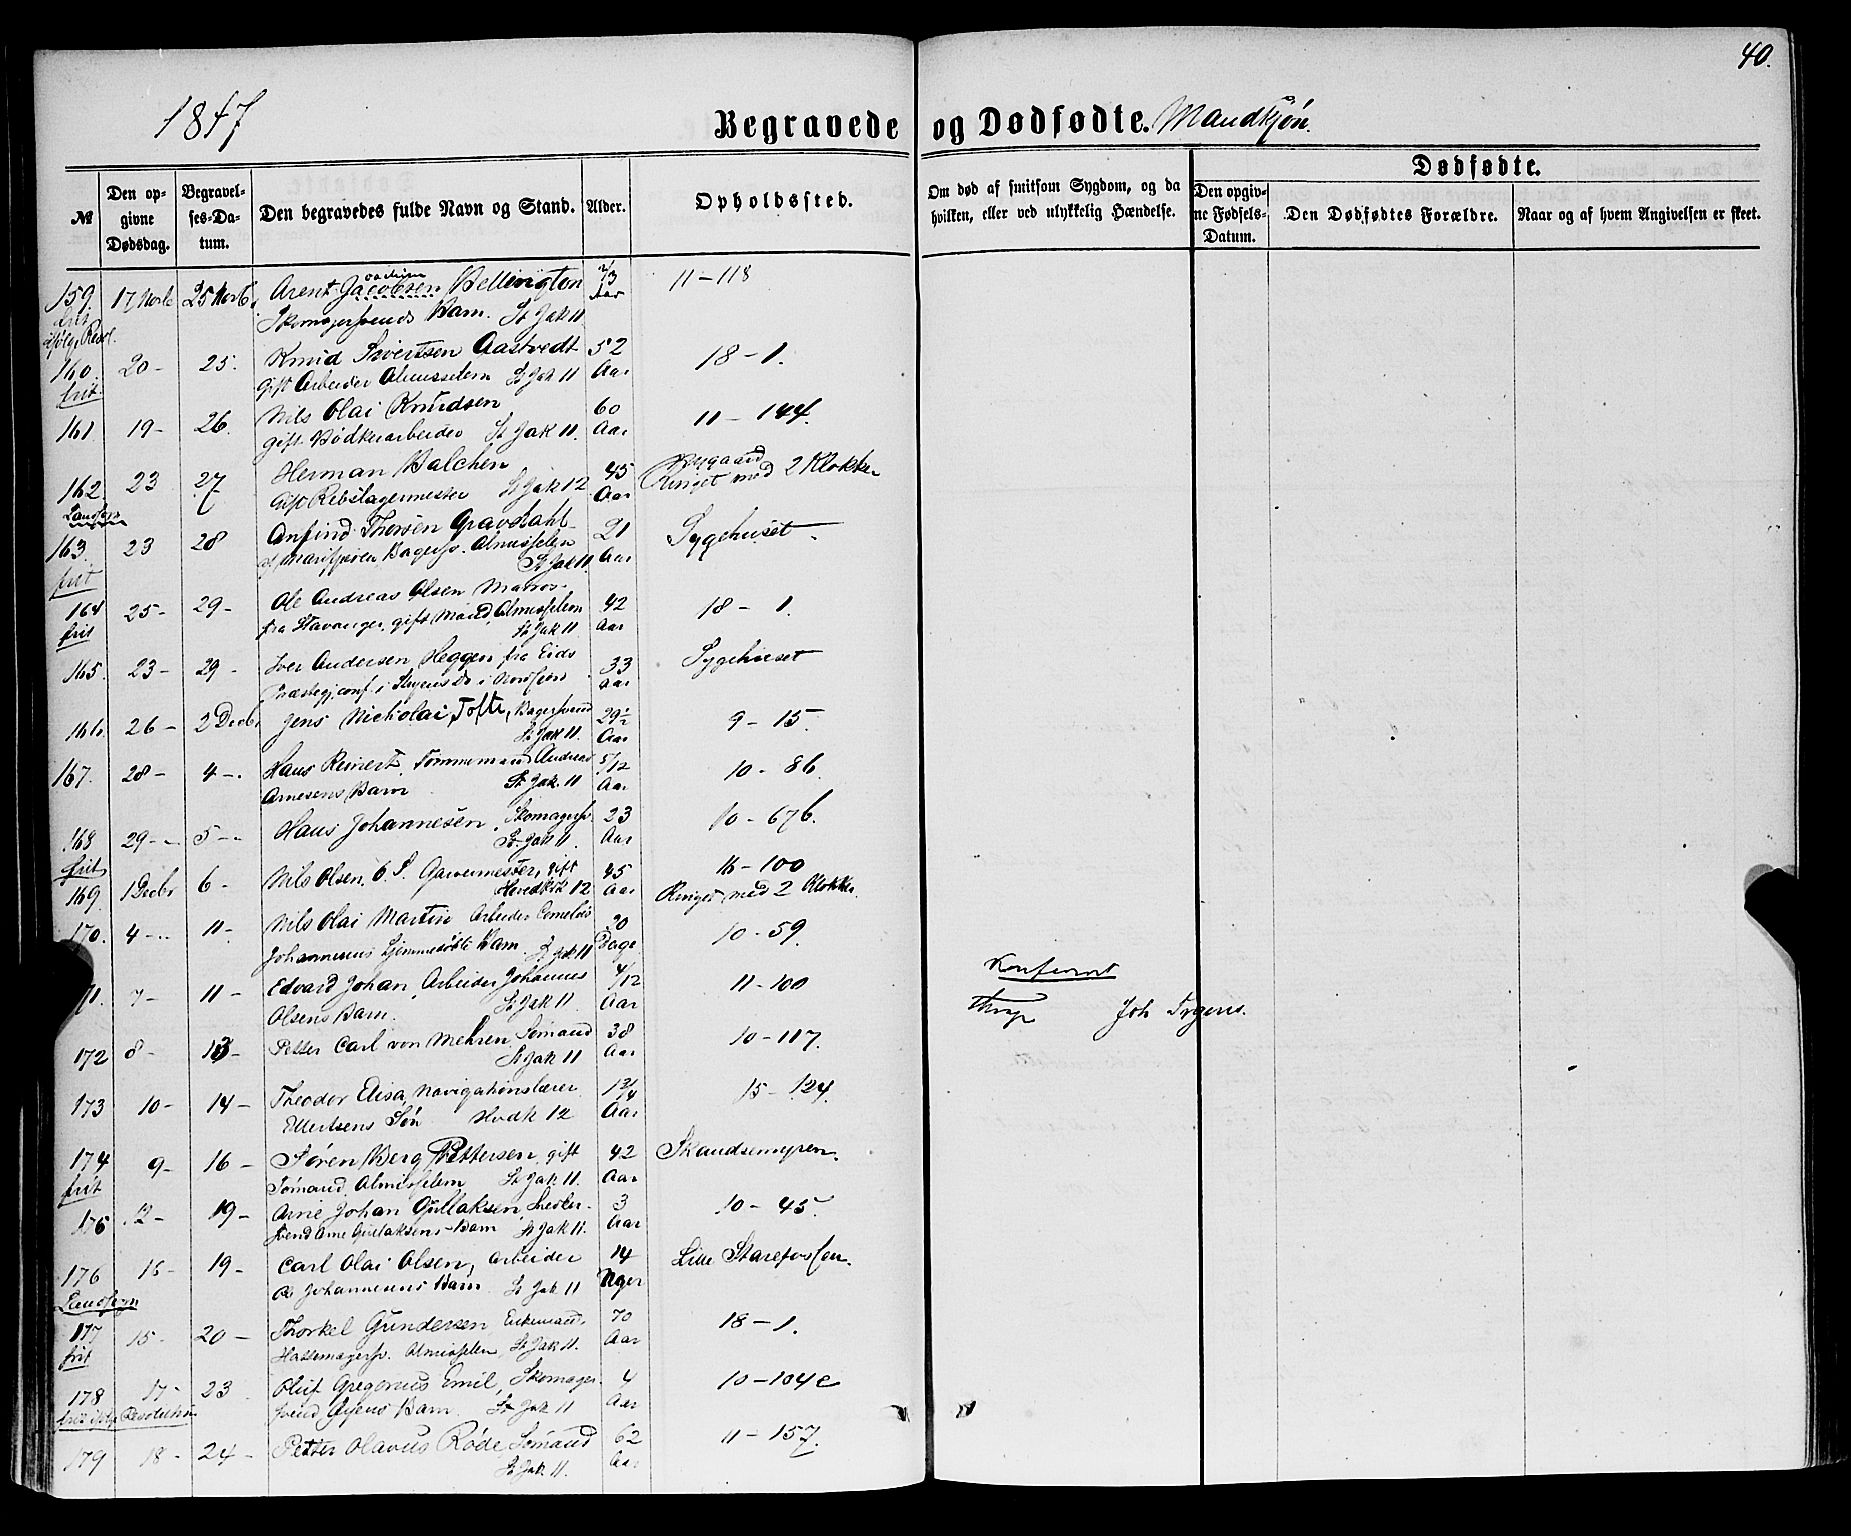 40.
1847
Begravede og Dødfødte. Mandkjøn.
№
Den opgivne Dødsdag.
Begravelses-Datum.
Den begravedes fulde Navn og Stand.
Alder.
Opholdssted.
Om død af smitsom Sygdom, og da hvilken, eller ved ulykkelig Hændelse.
Dødfødte.
Den opgivne Fødsels-Datum.
Den Dødfødtes Forældre.
Naar og af hvem Angivelsen er skeet.
159. 17 Novbr 25 Novbr. Arent Jacobsen Hellvigton 2/3 Aar 11-118
Joachim
Skomagersvends Barn. St Jak 11
frit ifølge Resol.
160. 20- 25. Knud Sivertsen Aastvedt 52 Aar 18-1.
frit. Gift Arbeider Almisselem St Jak 11
161 19- 26. Nils Olai Knudsen 60 Aar 11-144.
gift Bødkerarbeider St Jak 11.
162. 23 27 Herman Balchen 45 Aar Nygaard
Gift Rebslagermester St Jak 12 Ringet med 2 Klokker
Landsogn
163. 23 28 Anfind Thorsen Gravdahl 21 Aar Sygehuset
frit Bagersv. Almisselem St Jak 11.
164 25- 29- Ole Andreas Olsen Matros 42 Aar 18-1.
frit fra Stavanger, gift Mand, Almisselem St Jak 11.
165. 23- 29- Iver Andersen Heggen fra Eids 33 Aar Sygehuset
Præstegj. conf. i
166. 26- 2 Decbr Jens Nicholai Tofte, Bagersvend 29½ Aar 9-15.
St Jak 11.
167. 28- 4-. Hans Reinert, Tømmermand Andreas 5/12 Aar 10-86.
Arnesens Barn St Jak. 11
168 29-- 5-- Hans Johannesen, Skomagersv 23 Aar 10-676.
frit St Jak 11.
169. 1 Decbr 6- Nils Olsen. G. S. Garvermester, gift 45 Aar 16-100
Hovedkik 12 Ringet med 2 Klokker.
170. 4-- 11- Nils Olai Martin Arbeider Cornelius 20 Dage 10-59.
Johannesens hjemmedøbte Barn St Jak 11
71. 7- 11- Edvard Johan, Arbeider Johannes 4/12 Aar 11-100
Olsens Barn. St Jak 11.
Konfereret
Joh
172 8- 13- Petter Carl von Mehren, Sømand 38 Aar 10-117.
St Jak 11
173 10- 14- Theodor Elisa, Navigationslærer 1 3/4 Aar 15-124.
Ellertsens Søn Hvdk 12
174 9- 16- Søren Berg Pettersen, gift 42 Aar Skandsemyren.
frit Sømand, Almisselem St Jak 11.
176 12- 19- Arne Johan Gullaksen, Snedker- 3 Aar 10-45.
svend Arne Gullaksens Barn St Jak 11.
176 15- 19- Carl Olai Olsen, Arbeider 14 Uger Lille Starefossen.
Ole Johannesens Barn St Jak 11
Landsogn
177 15- 20- Thorkel Gundersen, Enkemand, 70 Aar 18-1.
frit Hattemagersv. Almisselem, St Jak 11.
178 17- 23 Oluf Gregorius Emil, Skomager- 4 Aar 10-104c
frit ifølge Resolution svend Barn St Jak 11
179 18- 24- Petter Olavus Røde, Sømand 62 Aar 11-157.
St Jak 11.